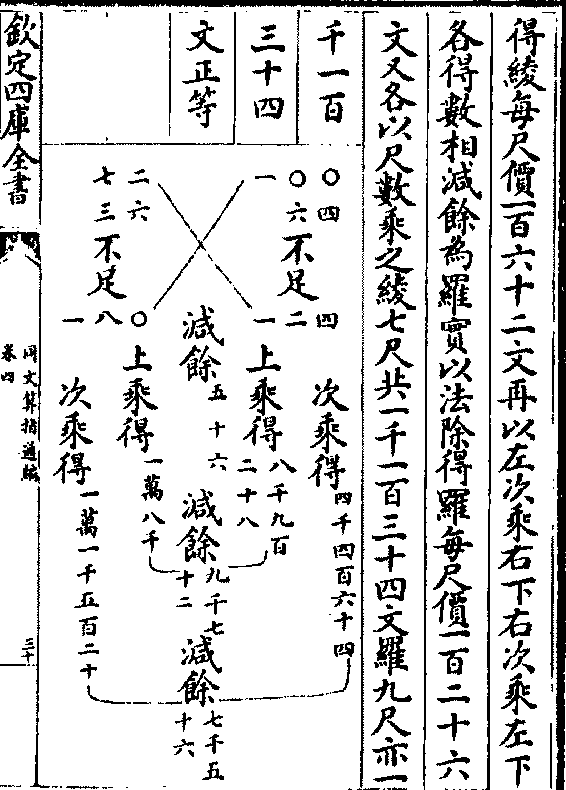 得綾每尺價一百六十二文再以左次乘右下右次乘左下
各得數相減餘為羅實以法除得羅每尺價一百二十六
文又各以尺數乘之綾七尺共一千一百三十四文羅九尺亦一
千一百
三十四
文正等
〇四
〇六
一
不足
四
二
一
次乘得
四千四百六十四
上乘得
八千九百
二十八
減餘
五十六
減餘
九千七
十二
減餘
七千五
十六
二六
七三
不足
〇
八
一
上乘得
一萬八千
次乘得
一萬一千五百二十
欽定四庫全書
同文算指通編
卷四
三十